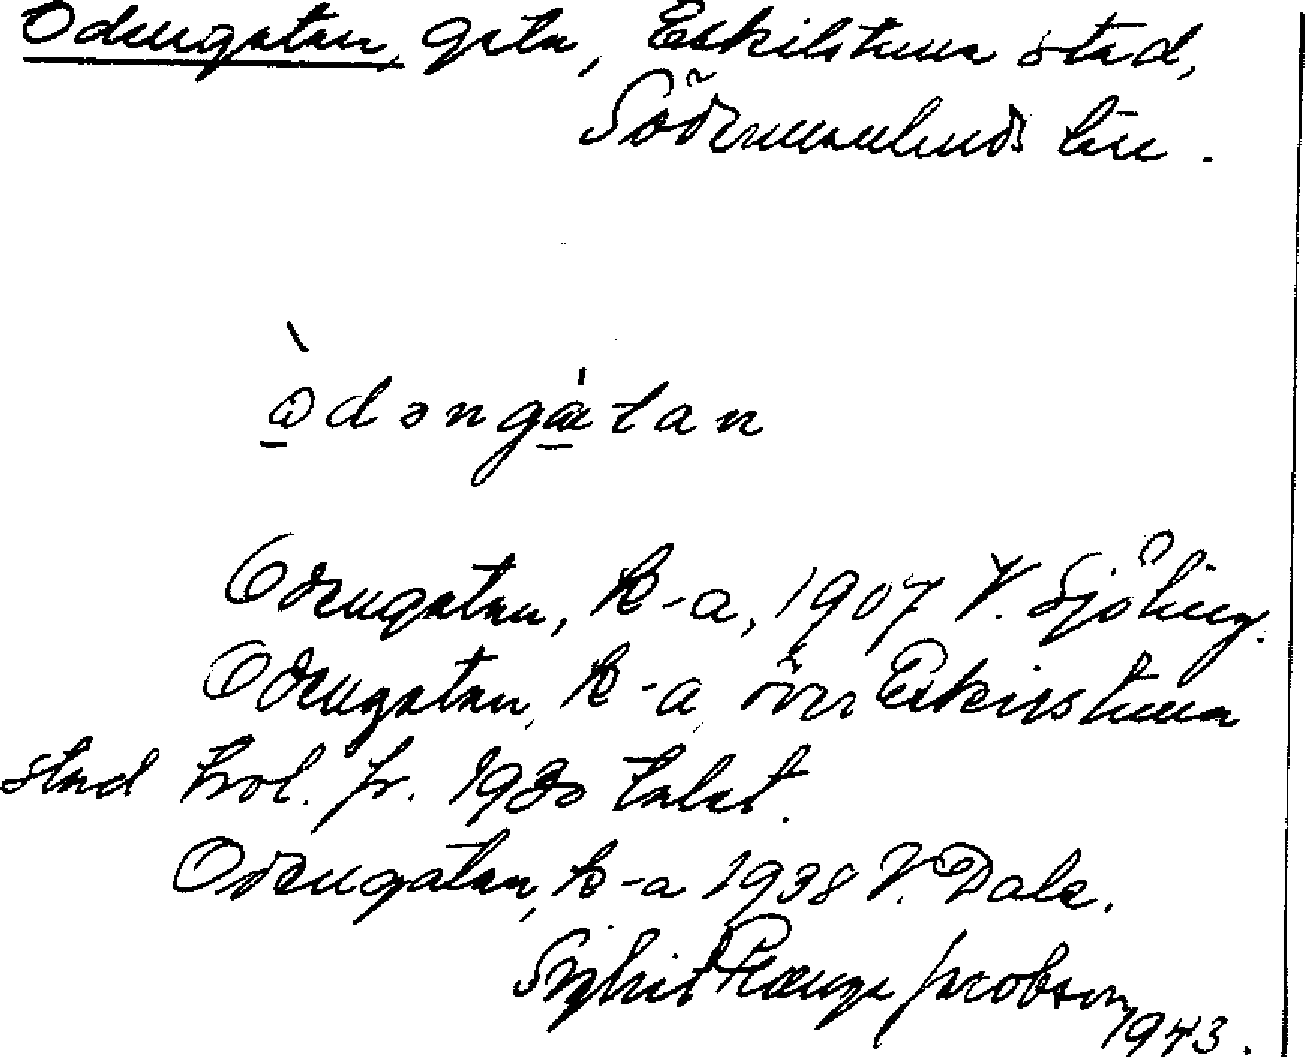 Odengatan, gata, Eskilstuna stad,
Södermanlands län.
o̱dənga̱tan
Odengatan, k-a, 1907 V. Sjöling.
Odengatan, k-a, över Eskilstuna
stad trol. fr. 1930 talet.
Odengatan, k-a 1938 V. Dale.
Jacobson
1943.